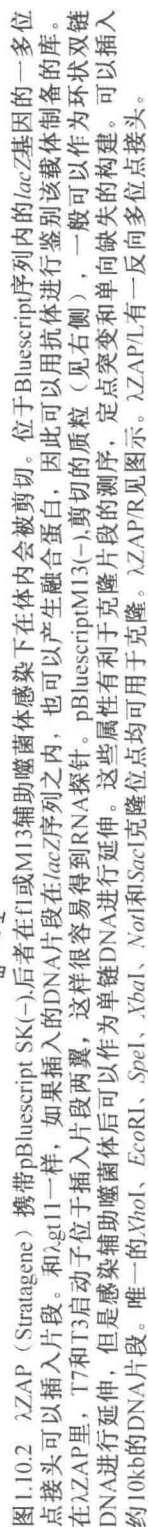 图1.10.2 λZAP（Stratagene）携带pBluescript SK(-),后者在f1或M13辅助噬菌体感染下在体内会被剪切。位于Bluescript序列内的lacZ基因的一多位
点接头可以插入片段。和λgt11一样，如果插入的DNA片段在lacZ序列之内，也可以产生融合蛋白，因此可以用抗体进行鉴别该载体制备的库。
在λZAP里，T7和T3启动子位于插入片段两翼，这样很容易得到RNA探针。pBluescriptM13(-),剪切的质粒（见右侧），一般可以作为环状双链
DNA进行延伸，但是感染辅助噬菌体后可以作为单链DNA进行延伸。这些属性有利于克隆片段的测序，定点突变和单向缺失的构建。可以插入
约10kb的DNA片段。唯一的XhoI、EcoRI、SpeI、XbaI、NotI和SacI克隆位点均可用于克隆。λZAP/R见图示。λZAP/L有一反向多位点接头。